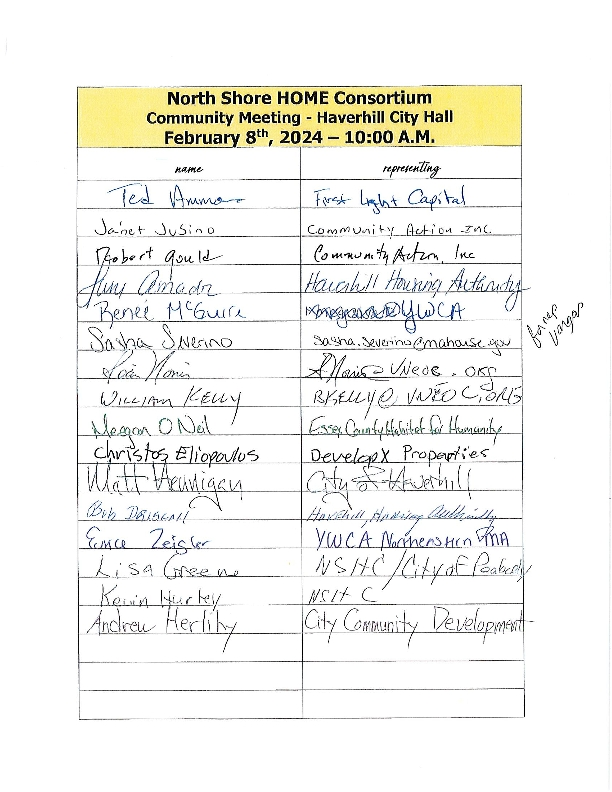 North Shore HOME Consortium
Community Meeting - Haverhill City Hall
February 8th, 2024 – 10:00 A.M.
name representing
Ted First Light Capital
Janet Community Action Inc.
Robert Gould Community Action, Inc
Amador Haverhill Housing Authority
Reneé McGuire @YWCA
Sasha Severino sasha.severino@mahouse.gov
for rep vargas
William Kelly BKelly@
Meagan O Neil Essex County Habitat for Humanity
Christos Eliopoulos DevelopX Properties
Matt Hennigan City of Haverhill
Bob Driscoll Haverhill Housing Authority
Zeigler YWCA Northeastern MA
Lisa Greene NSHC/City of Peabody
Kevin Hurley NSHC
Andrew Herlihy City Community Development